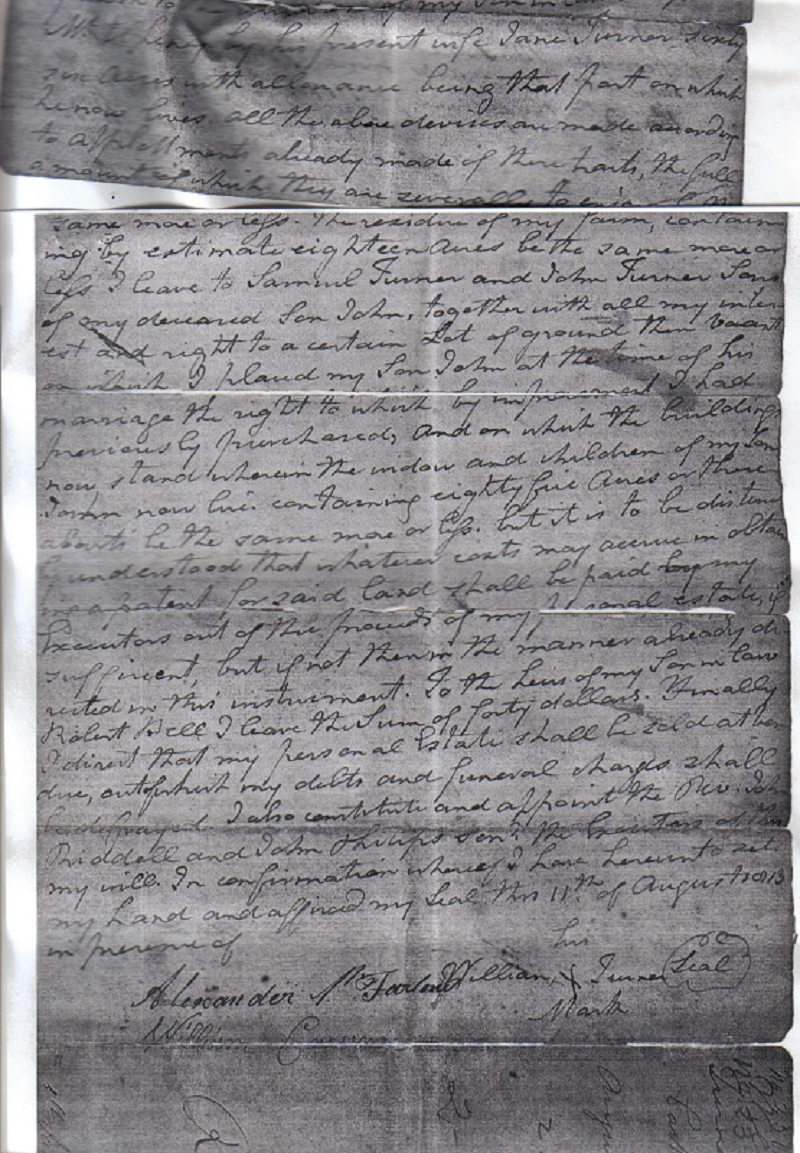 of my Son in law
by his present wife Jane Turner sixty
six Acres with allowance being that part on which
he now lives. all the above devises are made according
to allotments already made of there parts, the full
amount of which they are severally to enjoy
same more or less. The residue of my farm, contain
ing by estimate eighteen Acres be the same more or
less I leave to Samuel Turner and John Turner Sons
of my deceased Son John, together with all my inter
est and right to a certain Lot of ground then vacant
on which I placed my Son John at the time of his
marriage the right to which by improvement I had
previously purchased, and on which the buildings
now stand wherein the widow and children of my Son
John now live. containing eighty five Acres or there
abouts be the same more or less. but it is to be distinct
ly understood that whatever costs may accrue in obtain
ing a patent for said land shall be paid by my
Executors out of the proceeds of my personal estate, if
sufficient, but if not then in the manner already di
rected in this instrument. To the heirs of my Son in law
Robert Bell I leave the Sum of forty dollars. Finally
I direct that my personal Estate shall be sold at
due, out of which my debts and funeral charges shall
be defrayed. I also constitute and appoint the Rev. John
Riddell and John Philips Senr. the Executors of this
my will. In confirmation whereof I have hereunto set
my hand and affixed my Seal this 11th of August 1813
in presence of
his
Alexander McFarland William X Turner Seal
Mark
William